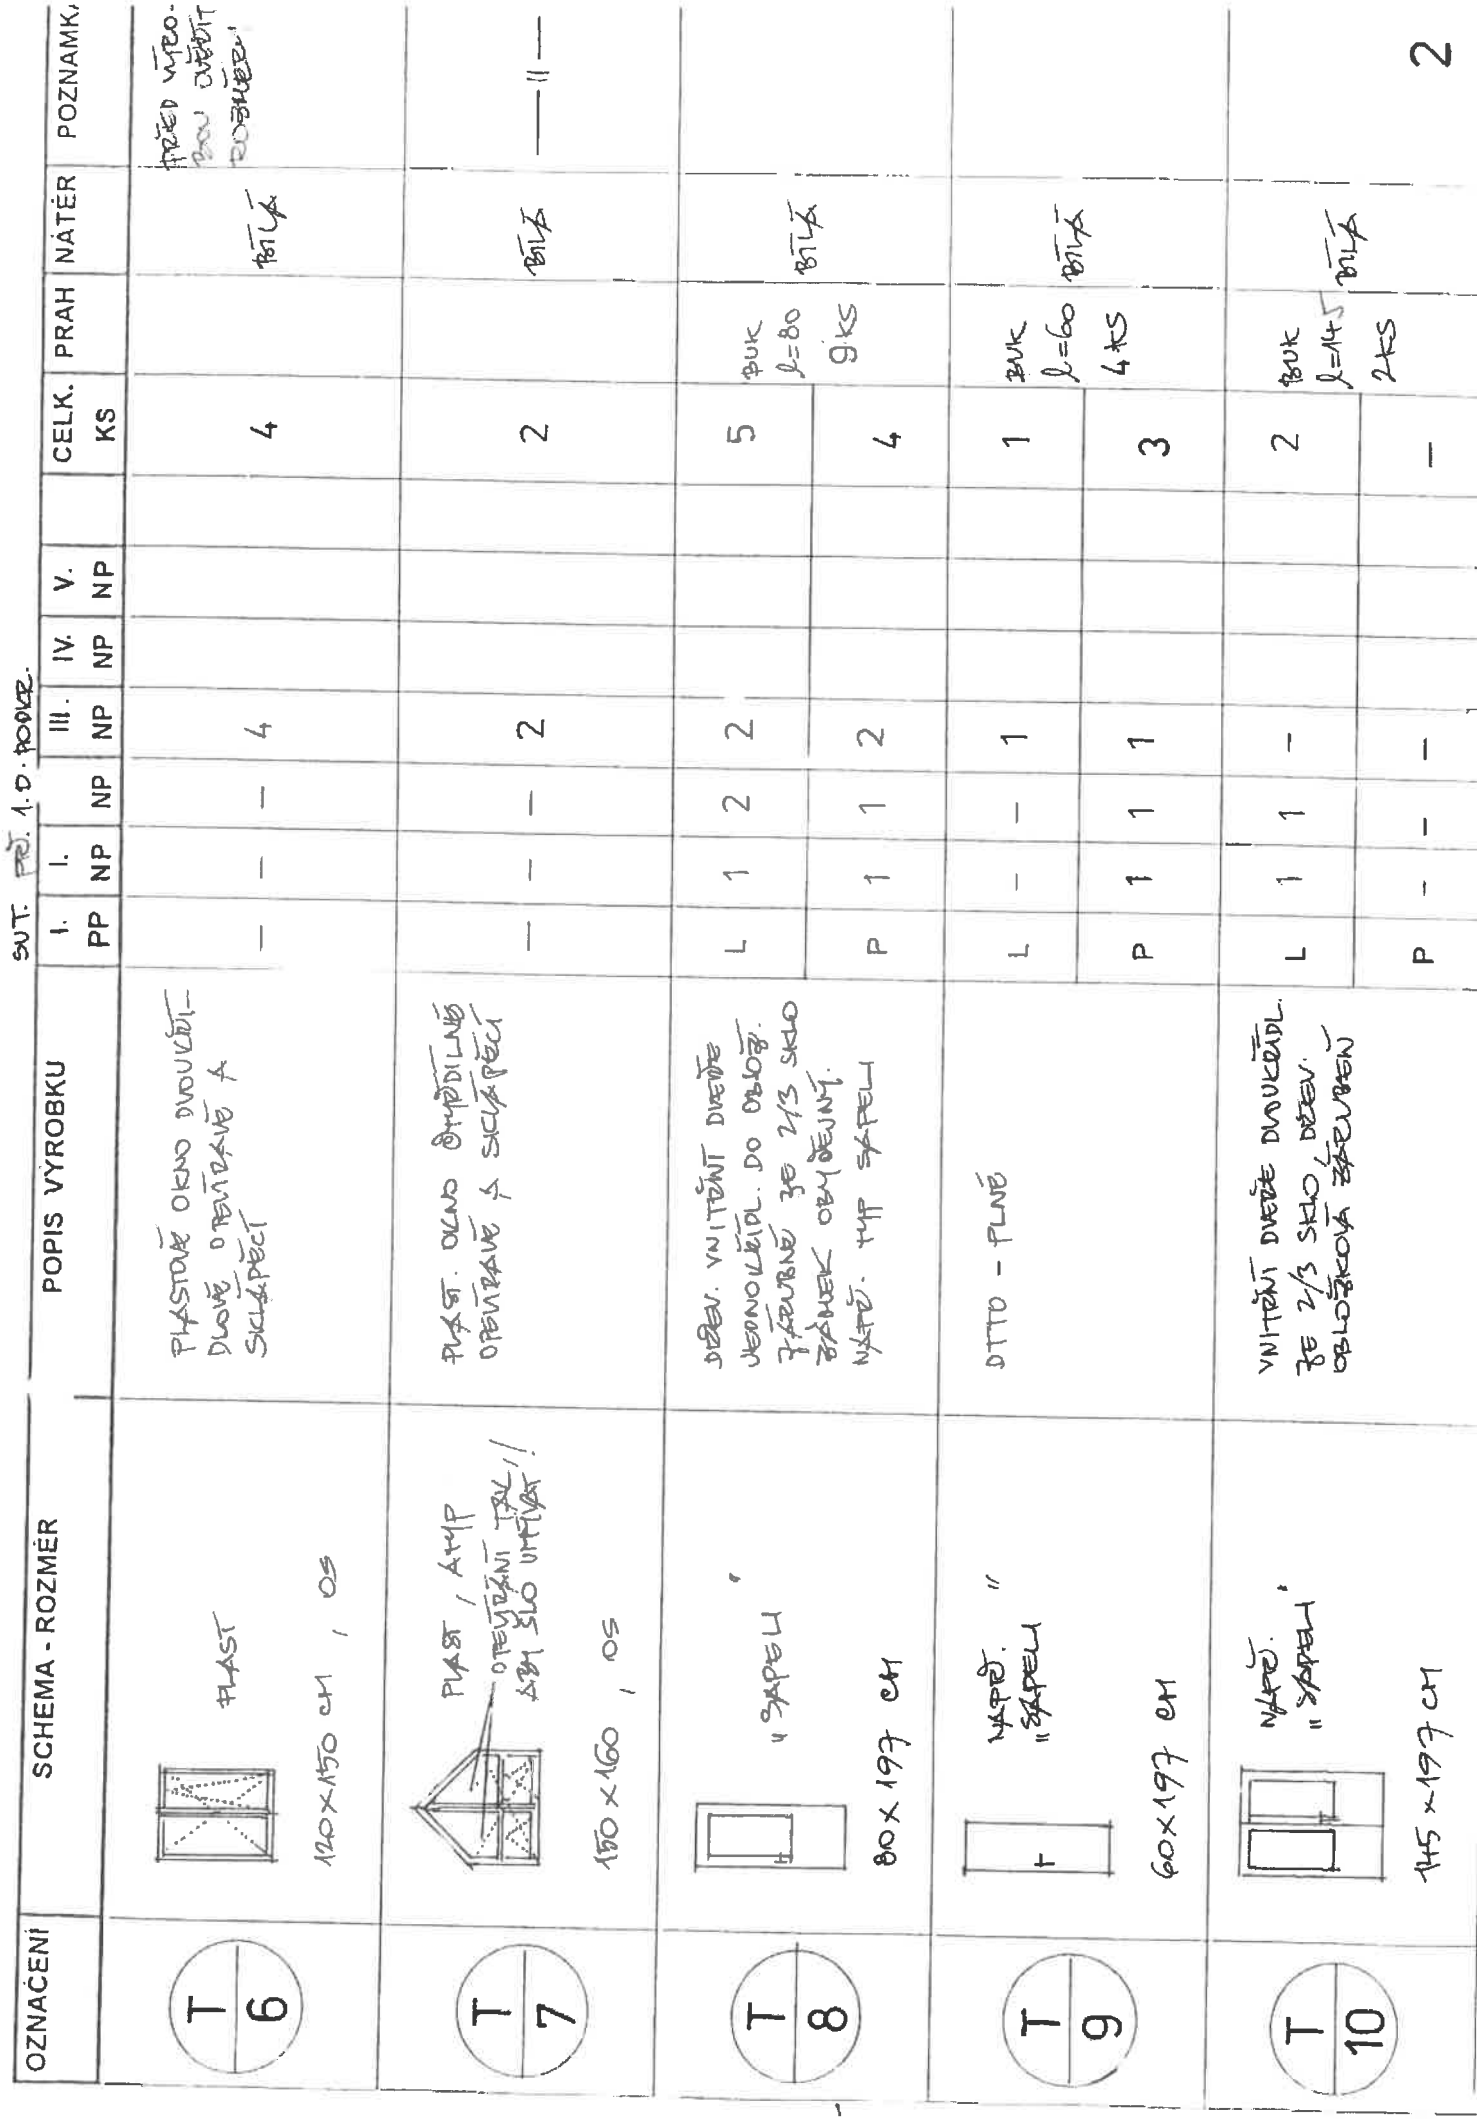 SUT. PŘ. 1.D. PODKR.
OZNAČENÍ SCHEMA - ROZMĚR POPIS VÝROBKU I. PP I. NP NP III. NP IV. NP V. NP CELK. KS PRAH NÁTĚR POZNÁMK
T 6
PLAST
120 x 150 CM , OS
PLASTOVÉ OKNO DVOUKŘÍ-
DLOVÉ OTEVÍRAVÉ A
SKLÁPĚCÍ
– – – 4 4
BÍLÁ
PŘED VÝRO-
BOU OVĚŘIT
ROZMĚRY
T 7
PLAST , ATYP
OTEVÍRÁNÍ TAK,
ABY ŠLO UMÝVAT!
150 x 160 , OS
PLAST. OKNO
OTEVÍRAVÉ A SKLÁPĚCÍ
– – – 2 2
BÍLÁ
— II —
T 8
"SAPELI"
80 x 197 CM
DŘEV. VNITŘNÍ DVEŘE
JEDNOKŘÍDL. DO OBLOŽ.
ZÁRUBNĚ ZE 2/3 SKLO
ZÁMEK OBYČEJNÝ.
NAPŘ. TYP SAPELI
L 1 2 2 5
P 1 1 2 4
BUK
l=80
9 KS
BÍLÁ
T 9
NAPŘ.
"SAPELI"
60 x 197 CM
DTTO - PLNÉ
L – – 1 1
P 1 1 1 3
BUK
l=60
4 KS
BÍLÁ
T 10
NAPŘ.
"SAPELI"
145 x 197 CM
VNITŘNÍ DVEŘE DVOUKŘÍDL.
ZE 2/3 SKLO, DŘEV.
OBLOŽKOVÁ ZÁRUBEŇ
L 1 1 – 2
P – – – –
BUK
l=145
2 KS
BÍLÁ
2